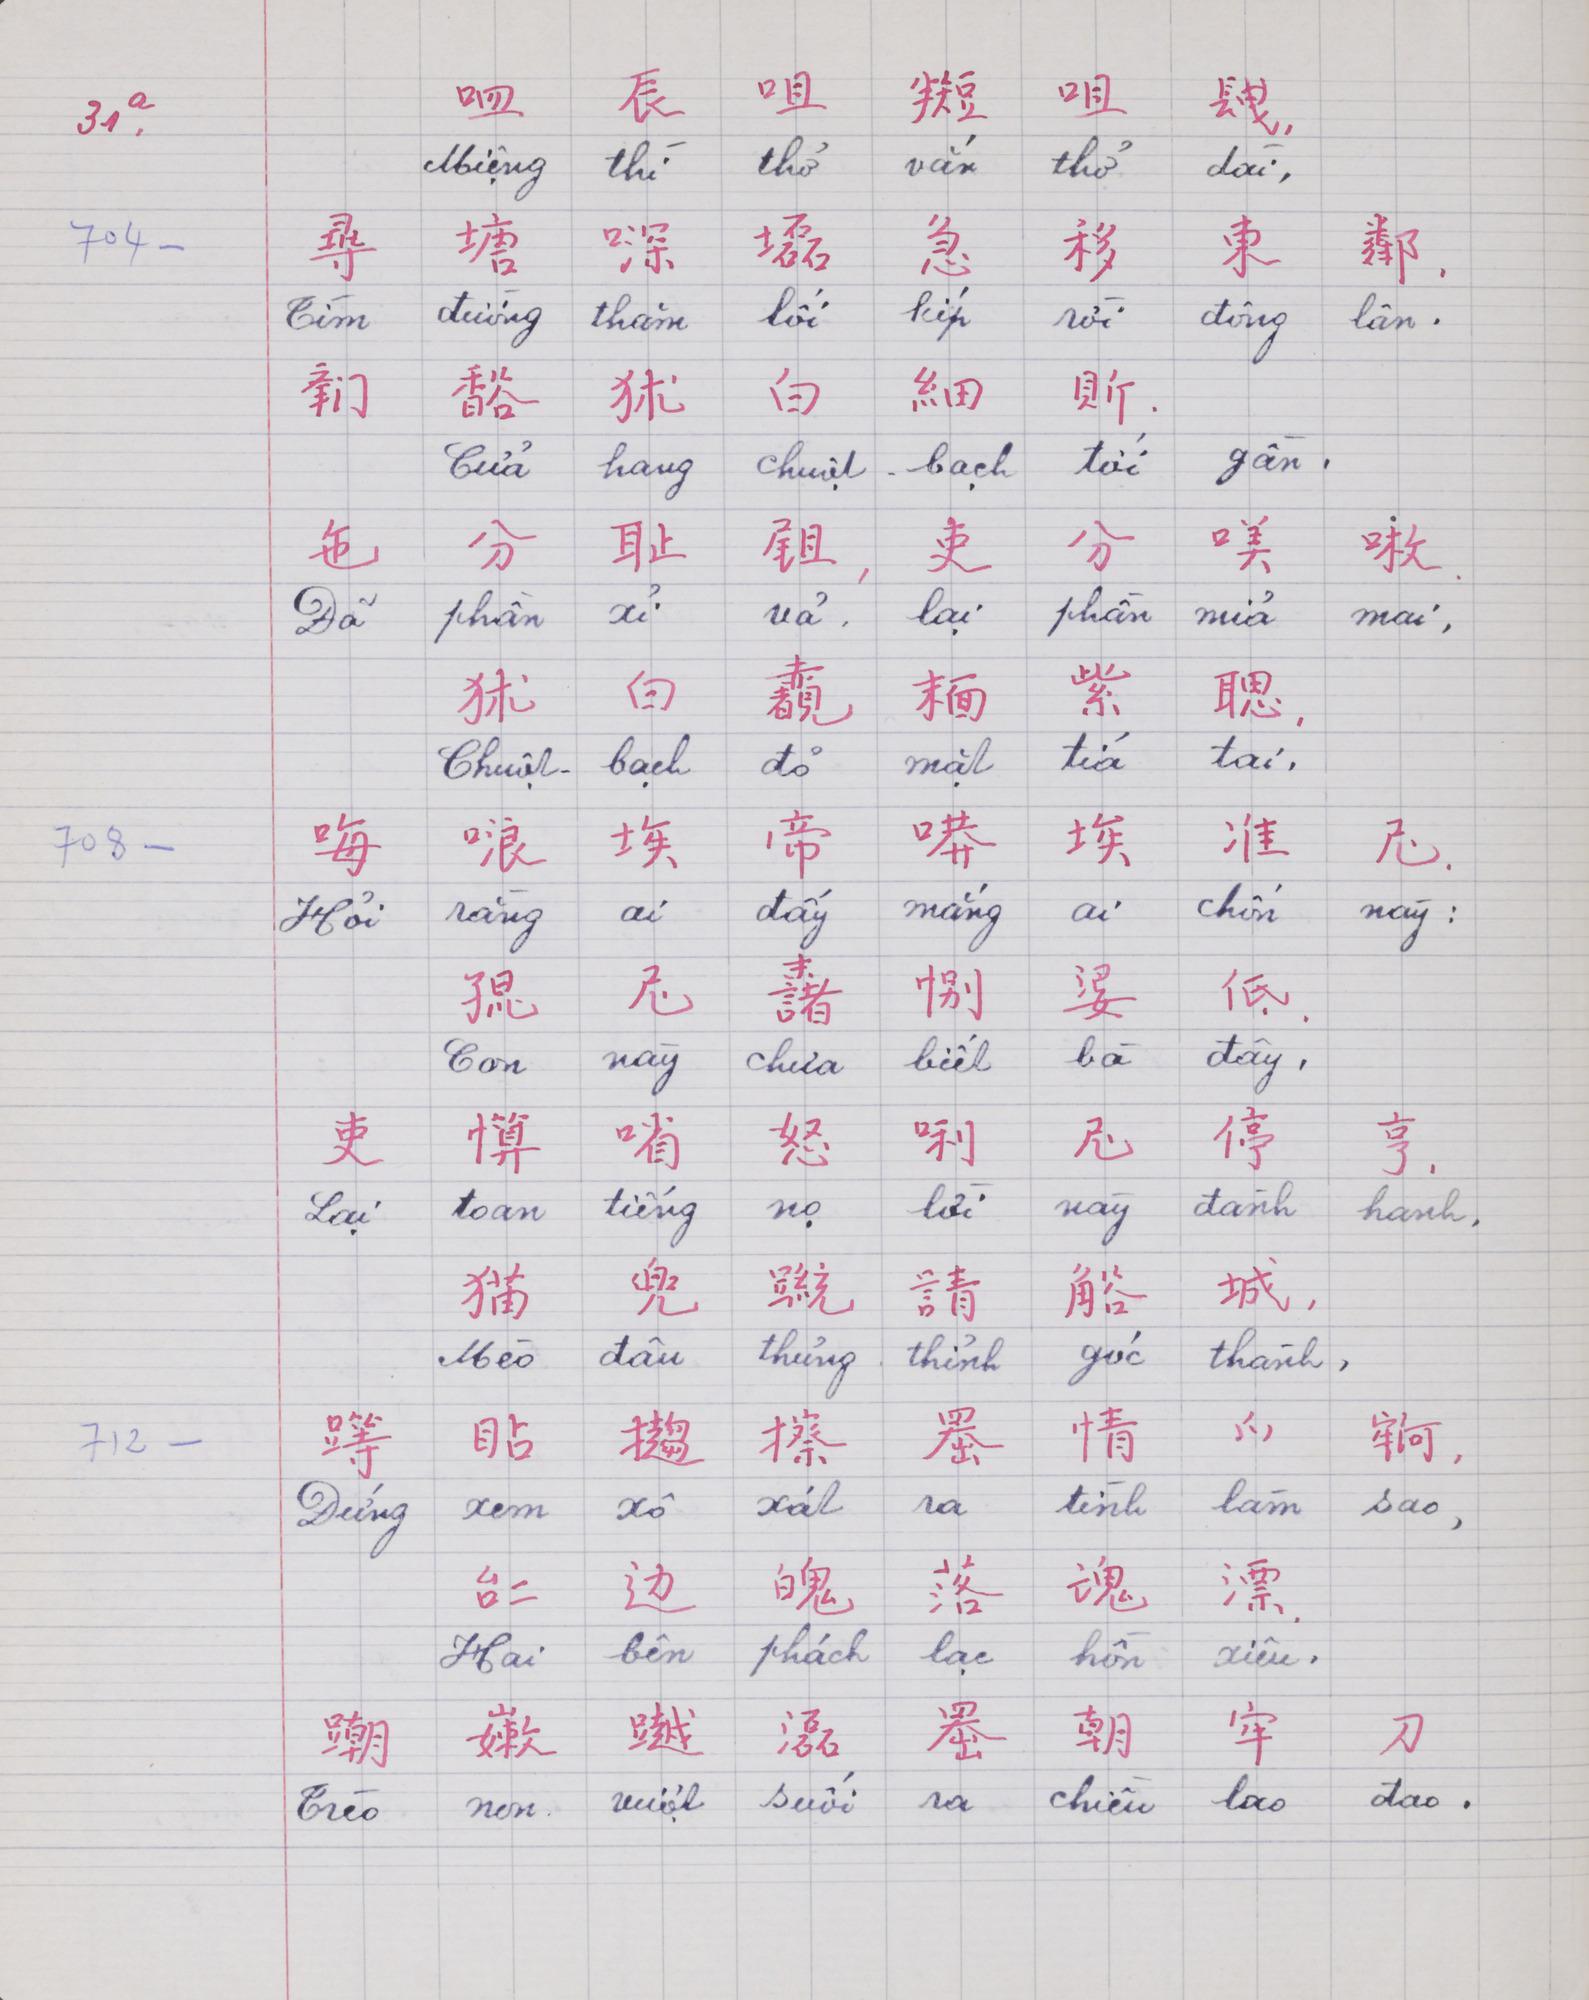 31a.
𠰘 辰 咀 𥐆 咀 𨱽,
Miệng thì thở vắn thở dài,
704 – 尋 塘 㗔 𡑖 急 移 東 鄰.
Tìm đường thăm lối kíp rời đông lân.
𨷯 谽 㹥 白 細 𧵆.
Cửa hang chuột-bạch tới gần,
㐌 分 耻 𡲤, 吏 分 嘆 𠶣.
Đã phần xỉ vả, lại phần mỉa mai,
㹥 白 𧹻 𩈘 紫 聰,
Chuột-bạch đỏ mặt tía tai,
708 – 𠳨 哴 埃 帝 𠻵 埃 准 尼.
Hỏi rằng ai đấy mắng ai chốn này:
𡥵 尼 𣗓 別 婆 低.
Con này chưa biết bà đây,
吏 算 㗂 怒 唎 尼 停 亨.
Lại toan tiếng nọ lời này đành hanh,
猫 兜 𨅉 請 𧣳 城,
Mèo đâu thủng thỉnh góc thành,
712 – 𨅸 貼 𢶿 擦 𦋦 情 𪜀 𡨺,
Đứng xem xô xát ra tình làm sao,
𠄩 边 魄 落 魂 漂.
Hai bên phách lạc hồn xiêu,
𨅹 𡽫 𨅿 𤂬 𦋦 朝 牢 刀
Trèo non vượt suối ra chiều lao đao.